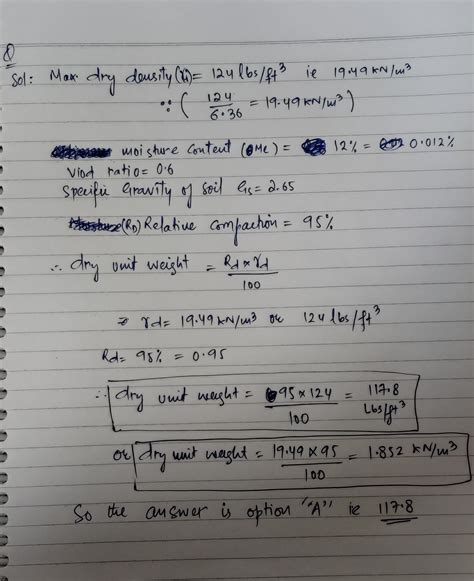 Q
Sol: Max dry density (γd) = 124 lbs/ft³ ie 19.49 kN/m³
∵ ( 124 / 6.36 = 19.49 kN/m³ )
moisture content (OMC) = 12% = 0.012%
Viod ratio = 0.6
Specific Gravity of soil Gs = 2.65
(RD) Relative Compaction = 95%
∴ dry unit weight = Rd × γd / 100
⇒ γd = 19.49 kN/m³ or 124 lbs/ft³
Rd = 95% = 0.95
∴ dry unit weight = 95 × 124 / 100 = 117.8 Lbs/ft³
or dry unit weight = 19.49 × 95 / 100 = 1.852 kN/m³
So the answer is option "A" ie 117.8